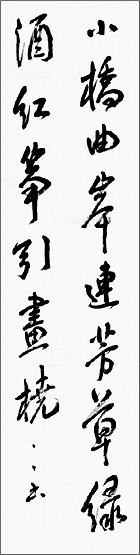 小橋曲岸連芳草綠
酒紅箏引畫橈